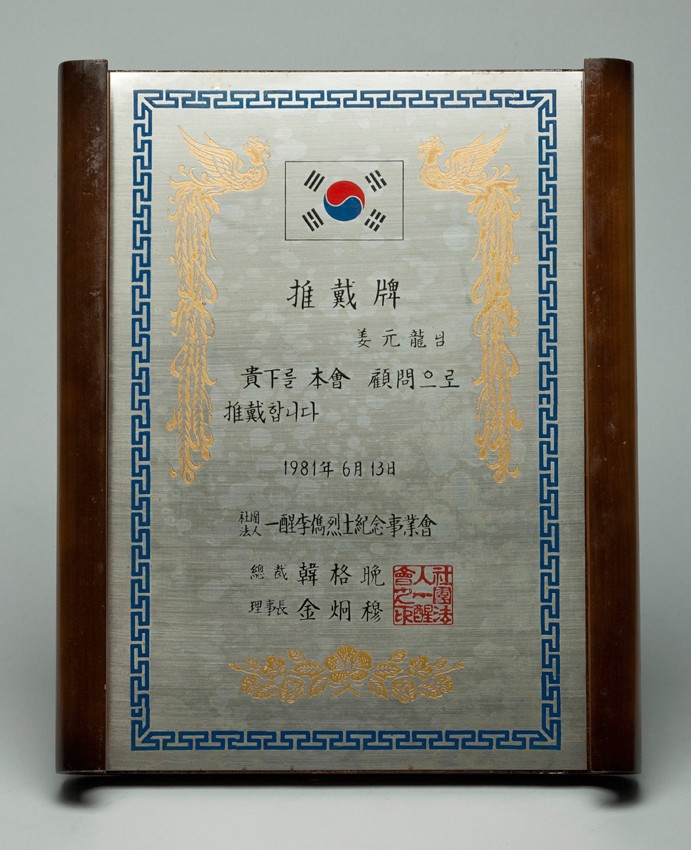 推戴牌
姜元龍님
貴下를 本會 顧問으로
推戴합니다
1981年 6月 13日
社團法人 一醒李儁烈士紀念事業會
總裁 韓格晩
理事長 金炯穆
社團法人一醒會之印